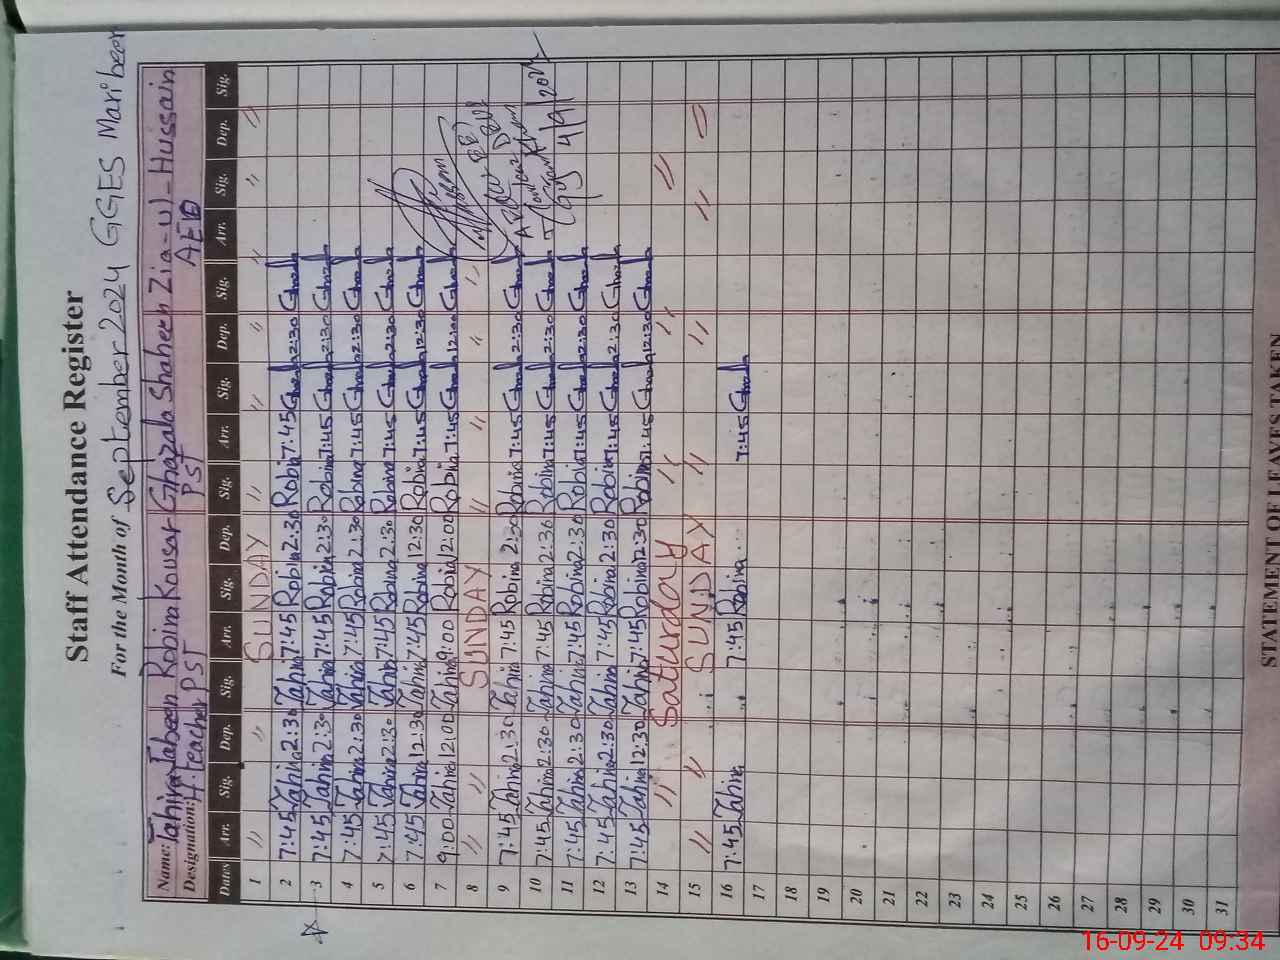 Staff Attendance Register
For the Month of September 2024 GGES Mari beer
Name: Tahira Jabeen Robina Kousar Ghazala Shaheen Zia-ul-Hussain
Designation: H.Teacher PST PST AEO
Dates Arr. Sig. Dep. Sig. Arr. Sig. Dep. Sig. Arr. Sig. Dep. Sig. Arr. Sig. Dep. Sig.
1 〃 〃 SUNDAY 〃 〃 〃 〃 〃 〃
2 7:45 Tahira 2:30 Tahira 7:45 Robina 2:30 Robina 7:45 Ghazala 2:30 Ghazala
3 7:45 Tahira 2:30 Tahira 7:45 Robina 2:30 Robina 7:45 Ghazala 2:30 Ghazala
4 7:45 Tahira 2:30 Tahira 7:45 Robina 2:30 Robina 7:45 Ghazala 2:30 Ghazala
5 7:45 Tahira 2:30 Tahira 7:45 Robina 2:30 Robina 7:45 Ghazala 2:30 Ghazala
6 7:45 Tahira 12:30 Tahira 7:45 Robina 12:30 Robina 7:45 Ghazala 12:30 Ghazala
7 9:00 Tahira 12:00 Tahira 9:00 Robina 12:00 Robina 7:45 Ghazala 12:00 Ghazala
8 〃 〃 SUNDAY 〃 〃 〃 〃
9 7:45 Tahira 2:30 Tahira 7:45 Robina 2:30 Robina 7:45 Ghazala 2:30 Ghazala
10 7:45 Tahira 2:30 Tahira 7:45 Robina 2:36 Robina 7:45 Ghazala 2:30 Ghazala
11 7:45 Tahira 2:30 Tahira 7:45 Robina 2:30 Robina 7:45 Ghazala 2:30 Ghazala 4/9/2024
12 7:45 Tahira 2:30 Tahira 7:45 Robina 2:30 Robina 7:45 Ghazala 2:30 Ghazala
13 7:45 Tahira 12:30 Tahira 7:45 Robina 12:30 Robina 7:45 Ghazala 12:30 Ghazala
14 〃 Saturday 〃 〃 〃
15 〃 〃 SUNDAY 〃 〃 〃
16 7:45 Tahira 7:45 Robina 7:45 Ghazala
17
18
19
20
21
22
23
24
25
26
27
28
29
30
31
STATEMENT OF LEAVES TAKEN
16-09-24 09:34